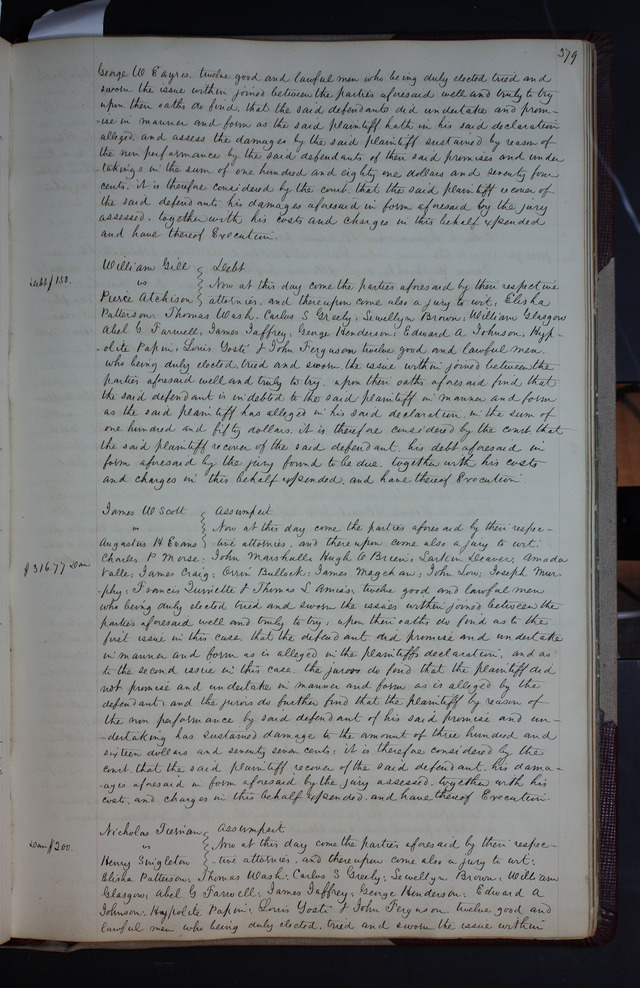 379
George W Eayres. twelve good and lawful men who being duly elected tried and
sworn the issue within joined between the parties aforesaid well and truly to try
upon their oaths do find, that the said defendants did undertake and prom-
-ise in manner and form as the said plaintiff hath in his said declaration
alleged, and assess the damages by the said plaintiff sustained by reason of
the non performance by the said defendants of their said promises and under
takings in the sum of one hundred and eighty one dollars and seventy four
cents. it is therefore considered by the court that the said plaintiff recover of
the said defendants his damages aforesaid in form aforesaid by the jury
assessed. together with his costs and charges in this behalf expended
and have thereof Execution.
William Gill Debt
vs Now at this day come the parties aforesaid by their respective
Debt $150.
Pierre Atchison attornies, and thereupon come also a jury to wit; Elisha
Patterson, Thomas Wash, Carlos S Greely, Sewellyn Brown, William Glasgow
Abel G Farwell, James Jaffrey, George Henderson, Edward A Johnson, Hyp-
-olite Papin, Louis Yosti & John Ferguson twelve good and lawful men.
who being duly elected tried and sworn the issue within joined between the
parties aforesaid well and truly to try. upon their oaths aforesaid find that
the said defendant is indebted to the said plaintiff in manner and form
as the said plaintiff has alleged in his said declaration, in the sum of
one hundred and fifty dollars. it is therefore considered by the court that
the said plaintiff recover of the said defendant his debt aforesaid in
form aforesaid by the jury found to be due. together with his costs
and charges in this behalf expended, and have thereof Execution.
James W Scott Assumpsit
vs Now at this day come the parties aforesaid by their respec-
Augustus H Evans -tive attornies, and thereupon came also a jury to wit:
Charles P Morse; John Marshall; Hugh O Brien; Larkin Deaver; Amada
$316.77 Dam
Valle; James Craig; Orrin Bullock; James Magehan; John Low; Joseph Mur-
-phy; Francis & Thomas L twelve good and lawful men
who being duly elected tried and sworn the issues within joined between the
parties aforesaid well and truly to try; upon their oaths do find as to the
first issue in this case, that the defendant did promise and undertake
in manner and form as is alleged in the plaintiffs declaration, and as
to the second issue in this case. the jurors do find that the plaintiff did
not promise and undertake in manner and form as is alleged by the
defendant; and the jurors do further find that the plaintiff by reason of
the non performance by said defendant of his said promise and un-
-dertaking has sustained damage to the amount of three hundred and
sixteen dollars and seventy seven cents; it is therefore considered by the
court, that the said plaintiff recover of the said defendant, his dama-
-ges aforesaid in form aforesaid by the jury assessed, together with his
costs, and charges in this behalf expended, and have thereof Execution.
Nicholas Assumpsit
vs Now at this day come the parties aforesaid by their respec-
Dam $200.
Henry Singleton -tive attornies, and thereupon came also a jury to wit;
Elisha Patterson; Thomas Wash; Carlos S Greely; Sewellyn Brown; William
Glasgow; Abel G Farwell; James Jaffrey; George Henderson; Edward A
Johnson, Haypolite Papin; Louis Yosti & John Ferguson twelve good and
lawful men who being duly elected, tried and sworn the issue within